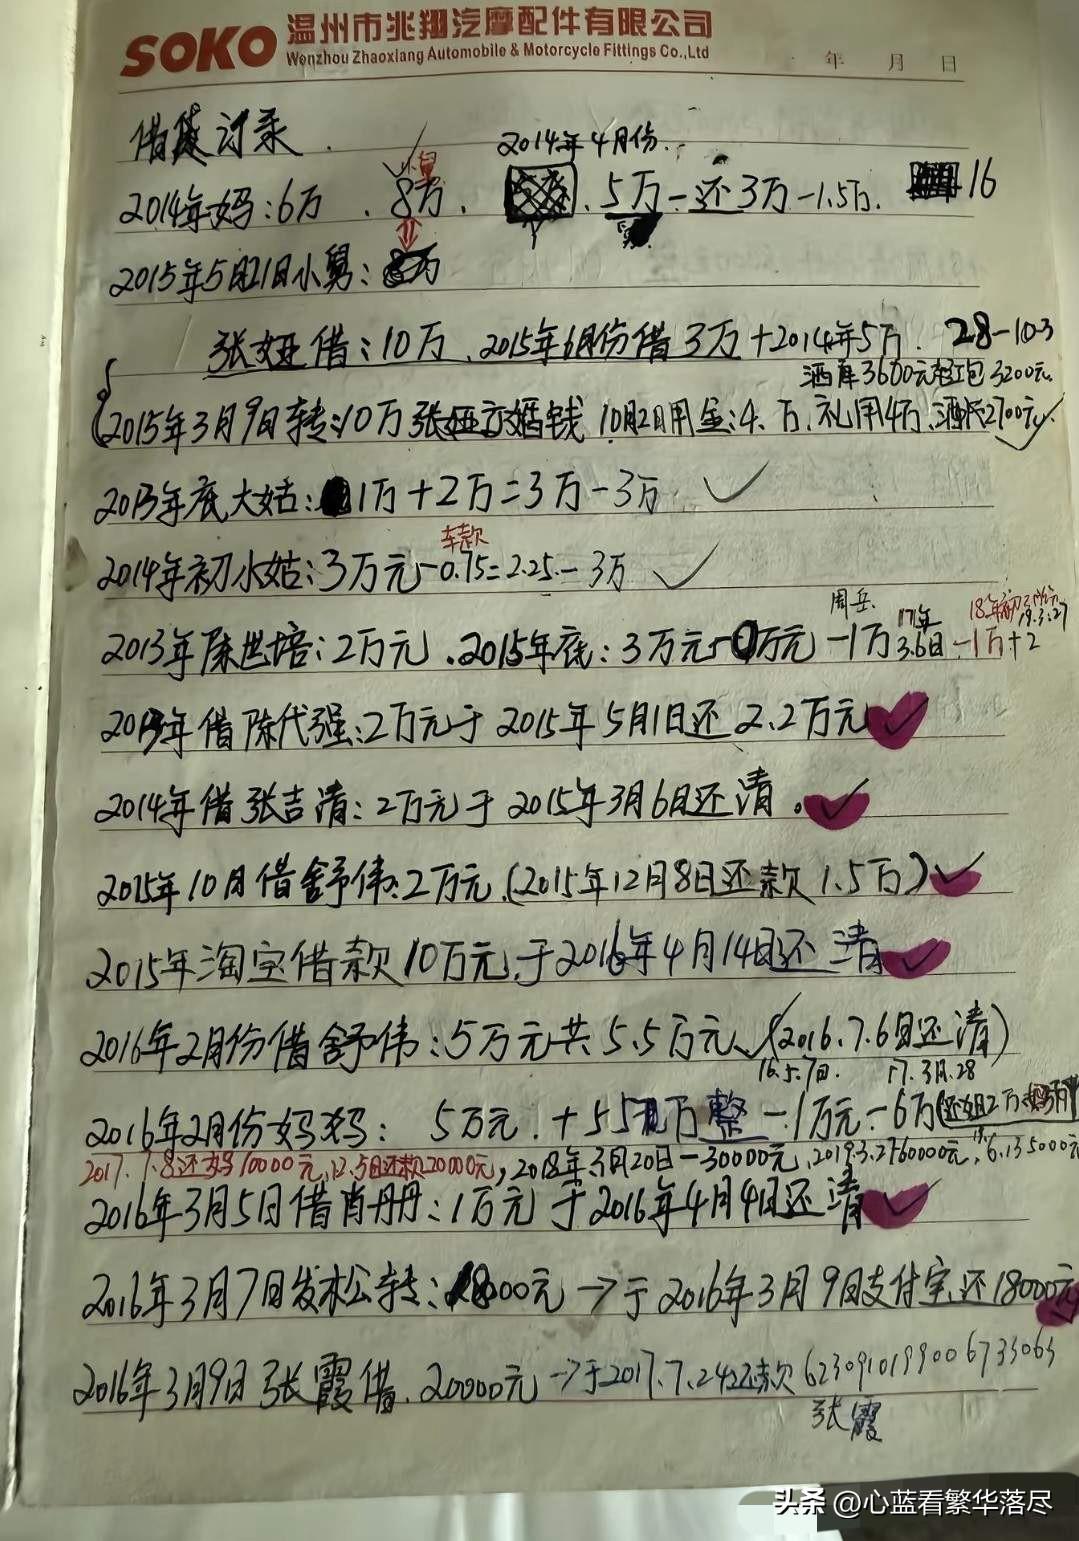 SOKO 温州市兆翔汽摩配件有限公司
Wenzhou Zhaoxiang Automobile & Motorcycle Fittings Co.,Ltd
年 月 日
借贷记录.
2014年4月份.
小舅
2014年妈:6万 . 8万. . 5万-还3万-1.5万. 16
2015年5月21日小舅:
张娅借:10万、2015年6月份借3万+2014年5万. 28-10-3
酒席3600元红包3200元
2015年3月9日转:10万张娅订婚钱 10月2日用金:4.万.礼用4万.酒席2700元
2013年底大姑: 1万+2万=3万-3万
车款
2014年初小姑:3万元-0.75=2.25-3万
周岳. 17年 18年 19.3.27
2013年陈世培:2万元.2015年底:3万元 万元-1万 3.6日-1万+2
年借陈代强:2万元于2015年5月1日还2.2万元
2014年借张吉清:2万元于2015年3月6日还清.
2015年10月借舒伟:2万元.(2015年12月8日还款1.5万)
2015年淘宝借款10万元.于2016年4月14日还清
2016年2月份借舒伟:5万元共5.5万元.(2016.7.6日还清)
16.5.7日. 17.3月.28
2016年2月份妈妈: 5万元.+5 万整-1万元-6万(还姐2万
2017.7.8还妈10000元,12.5日还款20000元,2018年3月20日-30000元.2019.3.27 60000元, 6.13 5000元
2016年3月5日借肖丹丹:1万元于2016年4月4日还清
2016年3月7日发松转: 8000元→于2016年3月9日支付宝还18000元
2016年3月9日张霞借.20000元→于2017.7.24还款
张霞
头条 @心蓝看繁华落尽